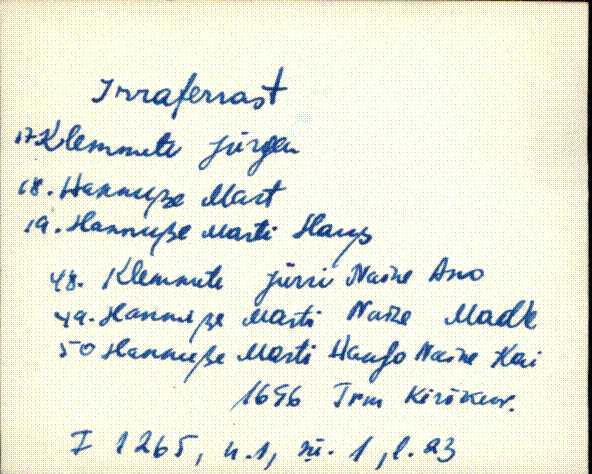 Irraferrast
17. Klemmeti Jürgen
18. Hannuße Mart
19. Hannuße Marti Hanß
48. Klemmeti Jürri Naine Ano
49. Hannuße Marti Naize Madle
50 Hannuße Marti Hanso Naine Kai
1686 Irm Kirikur.
I 1265, n.1, ſü. 1, l. 23